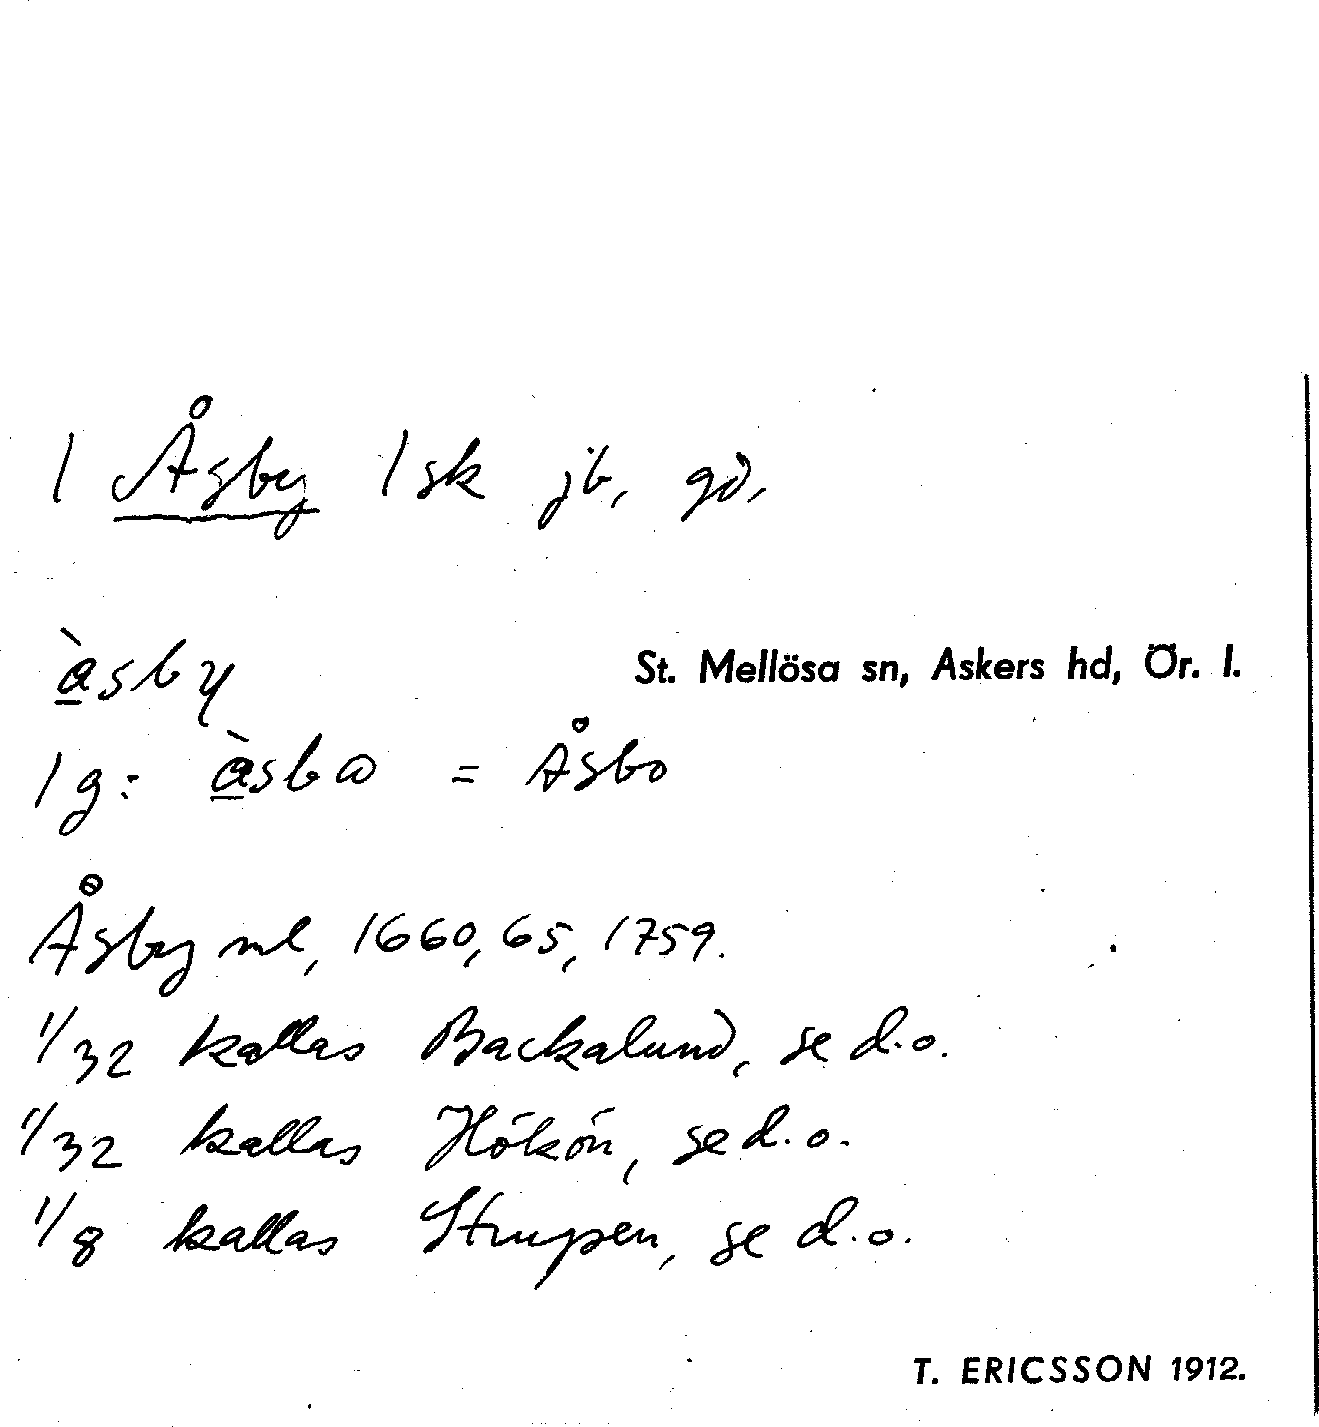 1 Åsby 1 sk jb, gd,
àsby
St. Mellösa sn, Askers hd, Ör. l.
1 g: àsbω = Åsbo
Åsby ml, 1660, 65, 1759.
1/32 kallas Backalund, se d.o.
1/32 kallas Hökön, se d.o.
1/8 kallas Strupen, se d.o.
T. ERICSSON 1912.